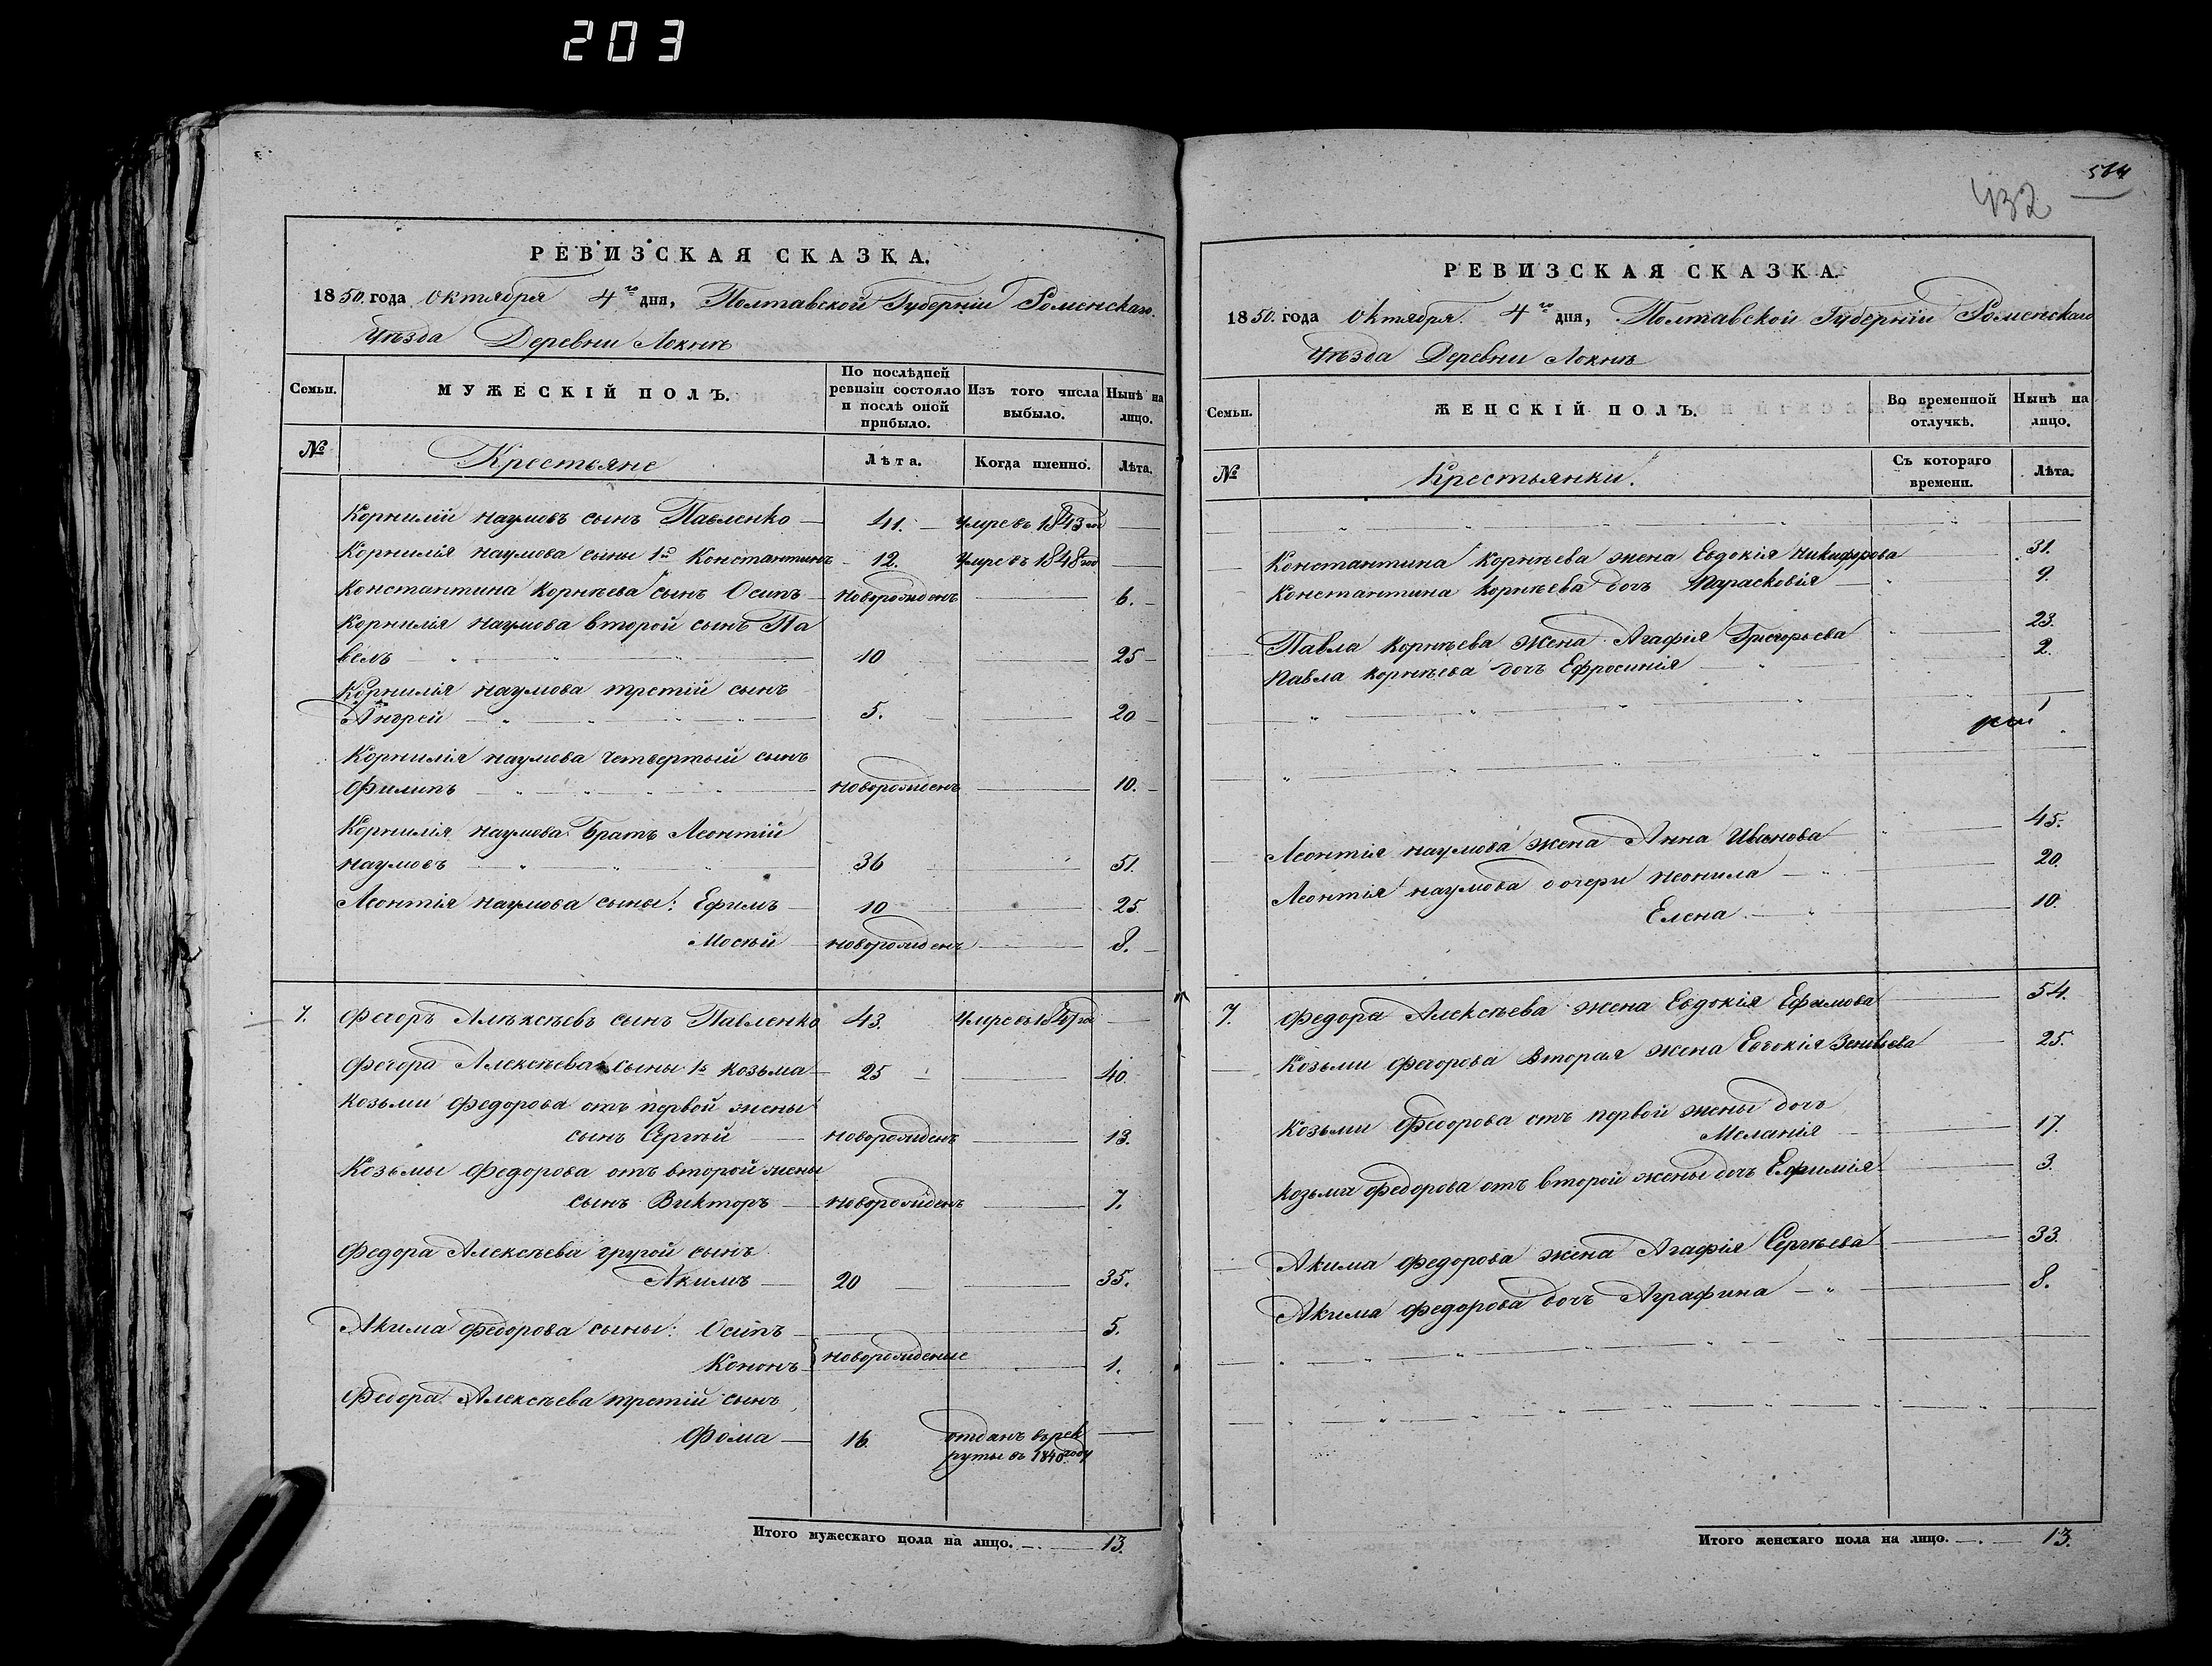 203
РЕВИЗСКАЯ СКАЗКА.
1850. года Октября 4го дня, Полтавской Губерніи Роменскаго.
Уѣзда Деревни Локнѣ
Семьи. МУЖЕСКІЙ ПОЛЪ. По послѣдней ревизіи состояло и послѣ оной прибыло. Изъ того числа выбыло. Нынѣ на лицо.
№ Крестьяне Лѣта. Когда именно. Лѣта.
Корнилій наумовъ сынъ Павленко 41. Умре въ 1843 год
Корнилія наумова сыны 1й Константинъ 12. Умре въ 1848 год
Константина Корнѣева сынъ Осипъ новорожденъ 6.
Корнилія наумова второй сынъ Па
велъ 10 25
Корнилія наумова третій сынъ
Андрей 5. 20
Корнилія наумова четвертый сынъ
Филипъ новорожденъ 10.
Корнилія наумова братъ Леонтій
наумовъ 36 51.
Леонтія наумова сыны: Ефимъ 10 25
Мосѣй новорожденъ 8.
7. Федоръ Алѣксѣевъ сынъ Павленко 43. Умре въ год
Федора Алексѣева сыны 1й козьма 25 40.
козьми Федорова отъ первой жены
сынъ Сергѣй новорожденъ 13.
Козьмы Федорова отъ второй жены
сынъ Викторъ новорожденъ 7.
Федора Алексѣева другой сынъ
Якимъ 20 35.
Акима Федорова сыны: Осипъ 5.
Кононъ новорожденые 1.
Федора Алексѣева третій сынъ
Фома 16. отданъ въ рек
руты въ 1840 году
Итого мужескаго пола на лицо. 13.
514
432
РЕВИЗСКАЯ СКАЗКА.
1850. года Октября. 4го дня, Полтавской Губерніи Роменскаго
Уѣзда Деревни Локнѣ
Семьи. ЖЕНСКІЙ ПОЛЪ. Во временной отлучкѣ. Нынѣ на лицо.
№ Крестьянки. Съ котораго времени. Лѣта.
Константина Корнѣева жена Евдокія Никифорова 31.
Константина Корнѣева дочъ Парасковія 9.
Павла Корнѣева жена Агафія Григорьева 23.
Павла Корнѣева дочъ Ефросинія 2.
Леонтія наумова жена Анна Иванова 45.
Леонтія наумова дочери неонила 20.
Елена 10.
7. Федора Алексѣева жена Евдокія Ефимова 54.
Козьми Федорова Вторая жена Евдокія Зеновьева 25.
Козьми Федорова отъ первой жены дочъ
Меланія 17.
козьми Федорова отъ второй жены дочъ Ефимія 3.
Акима Федорова жена Агафія Сергѣева 33.
Акима Федорова дочъ Аграфина 8.
Итого женскаго пола на лицо. 13.